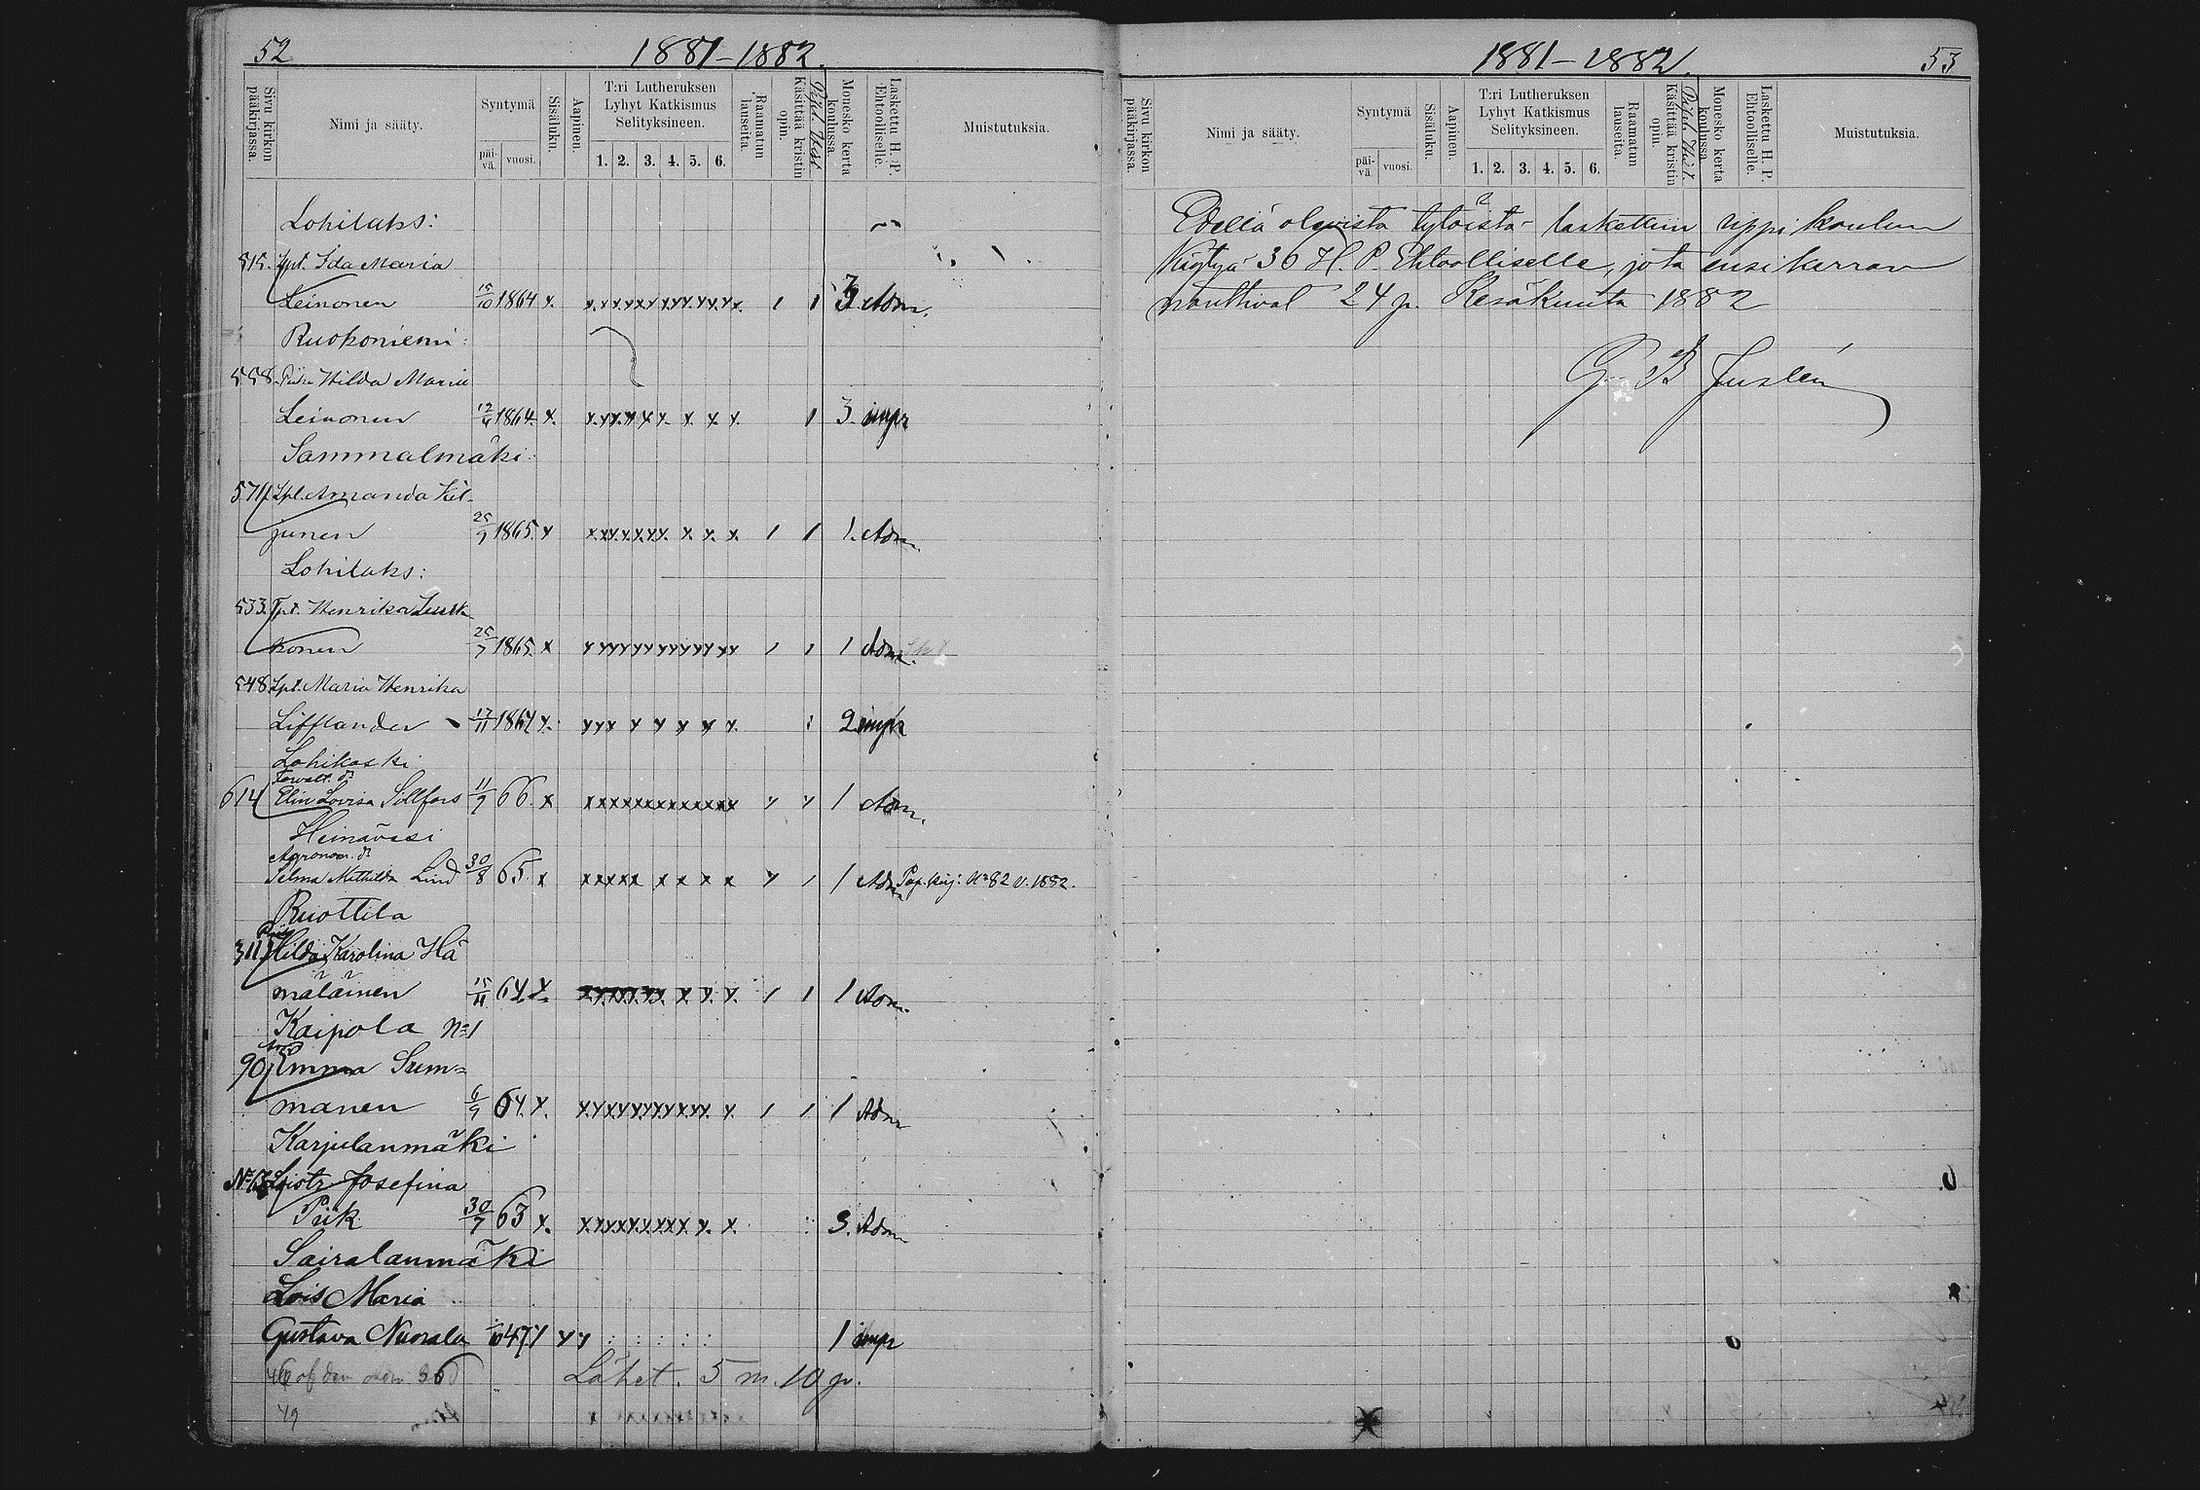 52
1881-1882.
Sivu kirkon pääkirjassa.
Nimi ja sääty.
Syntymä
päi-vä.
vuosi.
Sisäluku.
Aapinen.
T:ri Lutheruksen
Lyhyt Katkismus
Selityksineen.
1. 2. 3. 4. 5. 6.
Raamatun lauseita.
Käsittää kristin opin.
Bibl. Hist.
Monesko kerta koulussa.
Laskettu H. P. Ehtoolliselle.
Muistutuksia.
Lohilaks:
515. Ida Maria
Leinonen 15/10 1864 x. x.x.x.xx x.xx.xx.xx. 1 1 3 Adm.
Ruokoniemi:
558. Hilda Maria
Leinonen 12/4 1864 x. x.xx.xx x x. x. x x. 1 3. impr
Sammalmäki:
571 Lpt. Amanda Kil-
junen 25/9 1865. x x x x x. x. x x. x. x. x. 1 1 1. Adm.
Lohilaks:
533. Tpt. Henrika Lusk-
konen 25/7 1865. x x xxxxxxxxxx xx 1 1 1 Adm.
548 Lpt. Maria Henrika
Lifflander 17/11 1864 x. xxx x x x x x. 2 impr
Lohikoski
Forvalt. dr
614 Elin Lovisa Sillfors 11/9 66 x xxxxxxxxxxxxx x x 1 Adm.
Heinävesi
Agronom. dr
Selma Mathilda Lind 30/8 65. x xxxxx x x x x x 1 Adm Pap. kirj: No 82 v. 1882.
Ruottila
311 Hilda Karolina Hä
mäläinen 15/11 64 x. x.x.x.x.x.x x. x. x. 1 1 1 Adm.
Kaipola No 1
90 Emma Sum=
manen 6/9 64 x. x.xxxxxxxxxx. x. 1 1 1 Adm
Karjulanmäki
Lpistr Josefina
Piik 30/7 63 x. x.xxxxxxxx x. x 3. Adm
Sairalanmäki
Lois Maria
Gustava Nuorala 1 impr
46 af den Adm 36
Lähet. 5 m. 10 p.
49
1881-1882.
53
Sivu kirkon pääkirjassa.
Nimi ja sääty.
Syntymä
päi-vä
vuosi.
Sisäluku.
Aapinen.
T:ri Lutheruksen
Lyhyt Katkismus
Selityksineen.
1. 2. 3. 4. 5. 6.
Raamatun lauseita.
Käsittää kristin opin.
Bibl. Hist.
Monesko kerta koulussa.
Laskettu H. P. Ehtoolliselle.
Muistutuksia.
Edellä olevista tytöistä laskettiin rippi koulun
käytyä 36 H. P. Ehtoolliselle, jota ensi kerran
nauttivat 24 p. Kesäkuuta 1882
G. B. Juslén